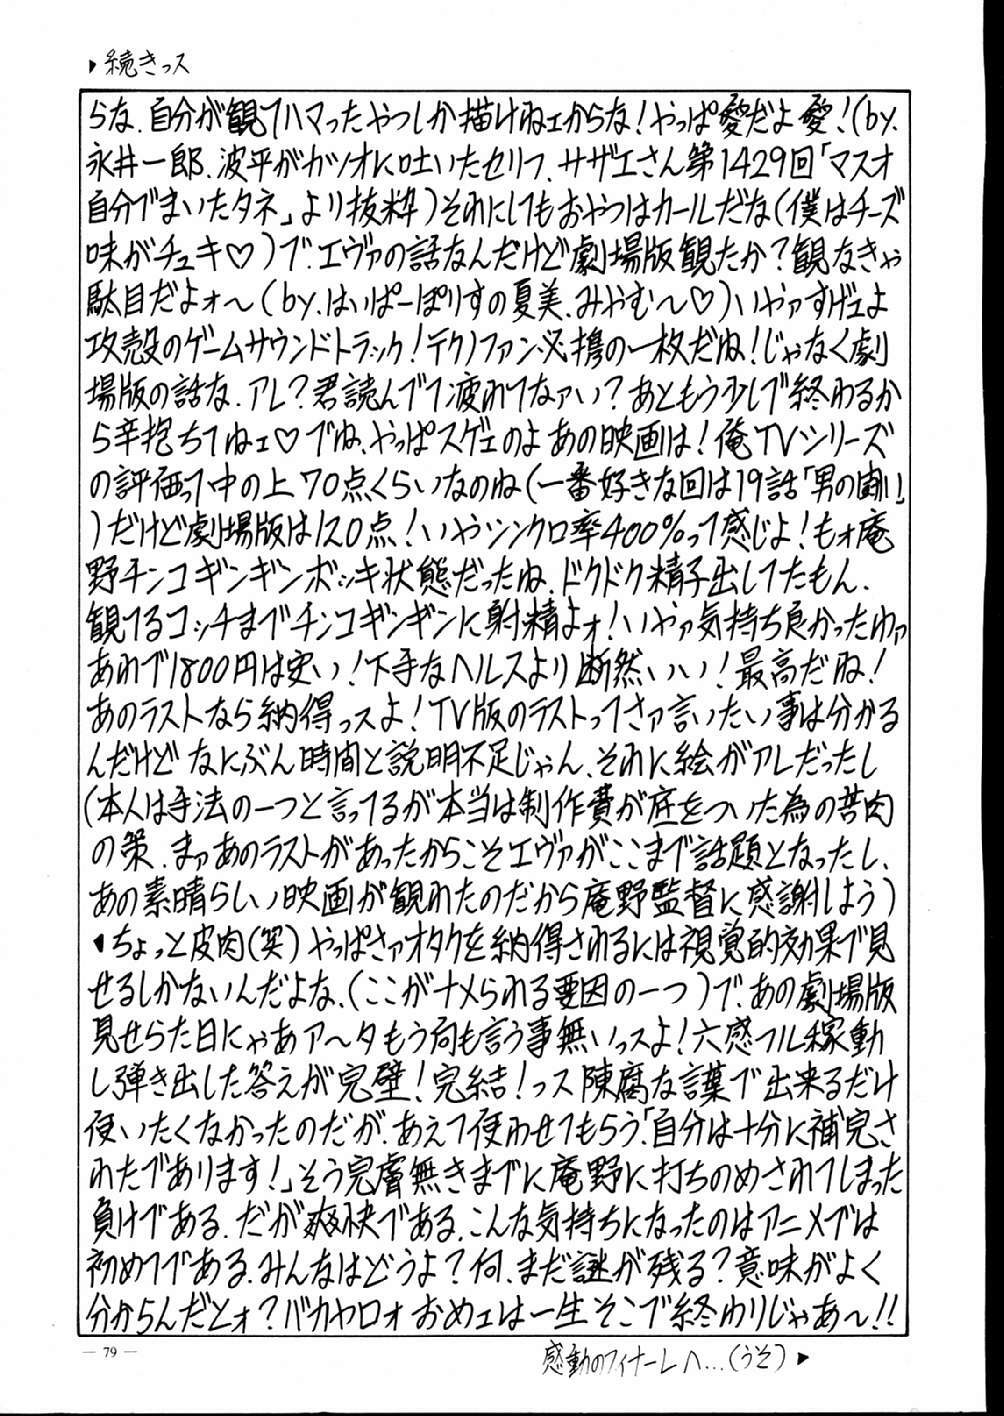 ▶続きっス
らな、自分が観てハマったやつしか描けねェからな！やっぱ愛だよ愛！（by.
永井一郎、波平がカツオに吐いたセリフ、サザエさん第1429回「マスオ
自分でまいたタネ」より抜粋）それにしてもおやつはカールだな（僕はチーズ
味がチュキ♡）で、エヴァの話なんだけど劇場版観たか？観なきゃ
駄目だよォ〜（by.はいぱーぽりすの夏美、みやむ〜♡）いやァすげェよ
攻殻のゲームサウンドトラック！テクノファン必携の一枚だね！じゃなく劇
場版の話な、アレ？君読んでて疲れてなァい？あともう少しで終わるか
ら辛抱ちてねェ♡でね、やっぱスゲェのよあの映画は！俺TVシリーズ
の評価って中の上70点くらいなのね（一番好きな回は19話「男の闘い」
）だけど劇場版は120点！いやシンクロ率400%って感じよ！もォ庵
野チンコギンギンボッキ状態だったね、ドクドク精子出してたもん、
観てるコッチまでチンコギンギンに射精よォ！いやァ気持ち良かったわァ
あれで1800円は安い！下手なヘルスより断然いい！最高だね！
あのラストなら納得っスよ！TV版のラストってさァ言いたい事は分かる
んだけどなにぶん時間と説明不足じゃん、それに絵がアレだったし
（本人は手法の一つと言ってるが本当は制作費が底をついた為の苦肉
の策、まァあのラストがあったからこそエヴァがここまで話題となったし、
あの素晴らしい映画が観れたのだから庵野監督に感謝しよう）
▼ちょっと皮肉（笑）やっぱさァオタクを納得されるには視覚的効果で見
せるしかないんだよな、（ここがナメられる要因の一つ）で、あの劇場版
見せらた日にゃあア〜タもう何も言う事無いっスよ！六感フル稼動
し弾き出した答えが完璧！完結！っス陳腐な言葉で出来るだけ
使いたくなかったのだが、あえて使わせてもらう、「自分は十分に補完さ
れたであります！」そう完膚無きまでに庵野に打ちのめされてしまった
負けである、だが爽快である、こんな気持ちになったのはアニメでは
初めてである、みんなはどうよ？何、まだ謎が残る？意味がよく
分からんだとォ？バカヤロォおめェは一生そこで終わりじゃあ〜！！
— 79 —
感動のフィナーレへ…（うそ）▶